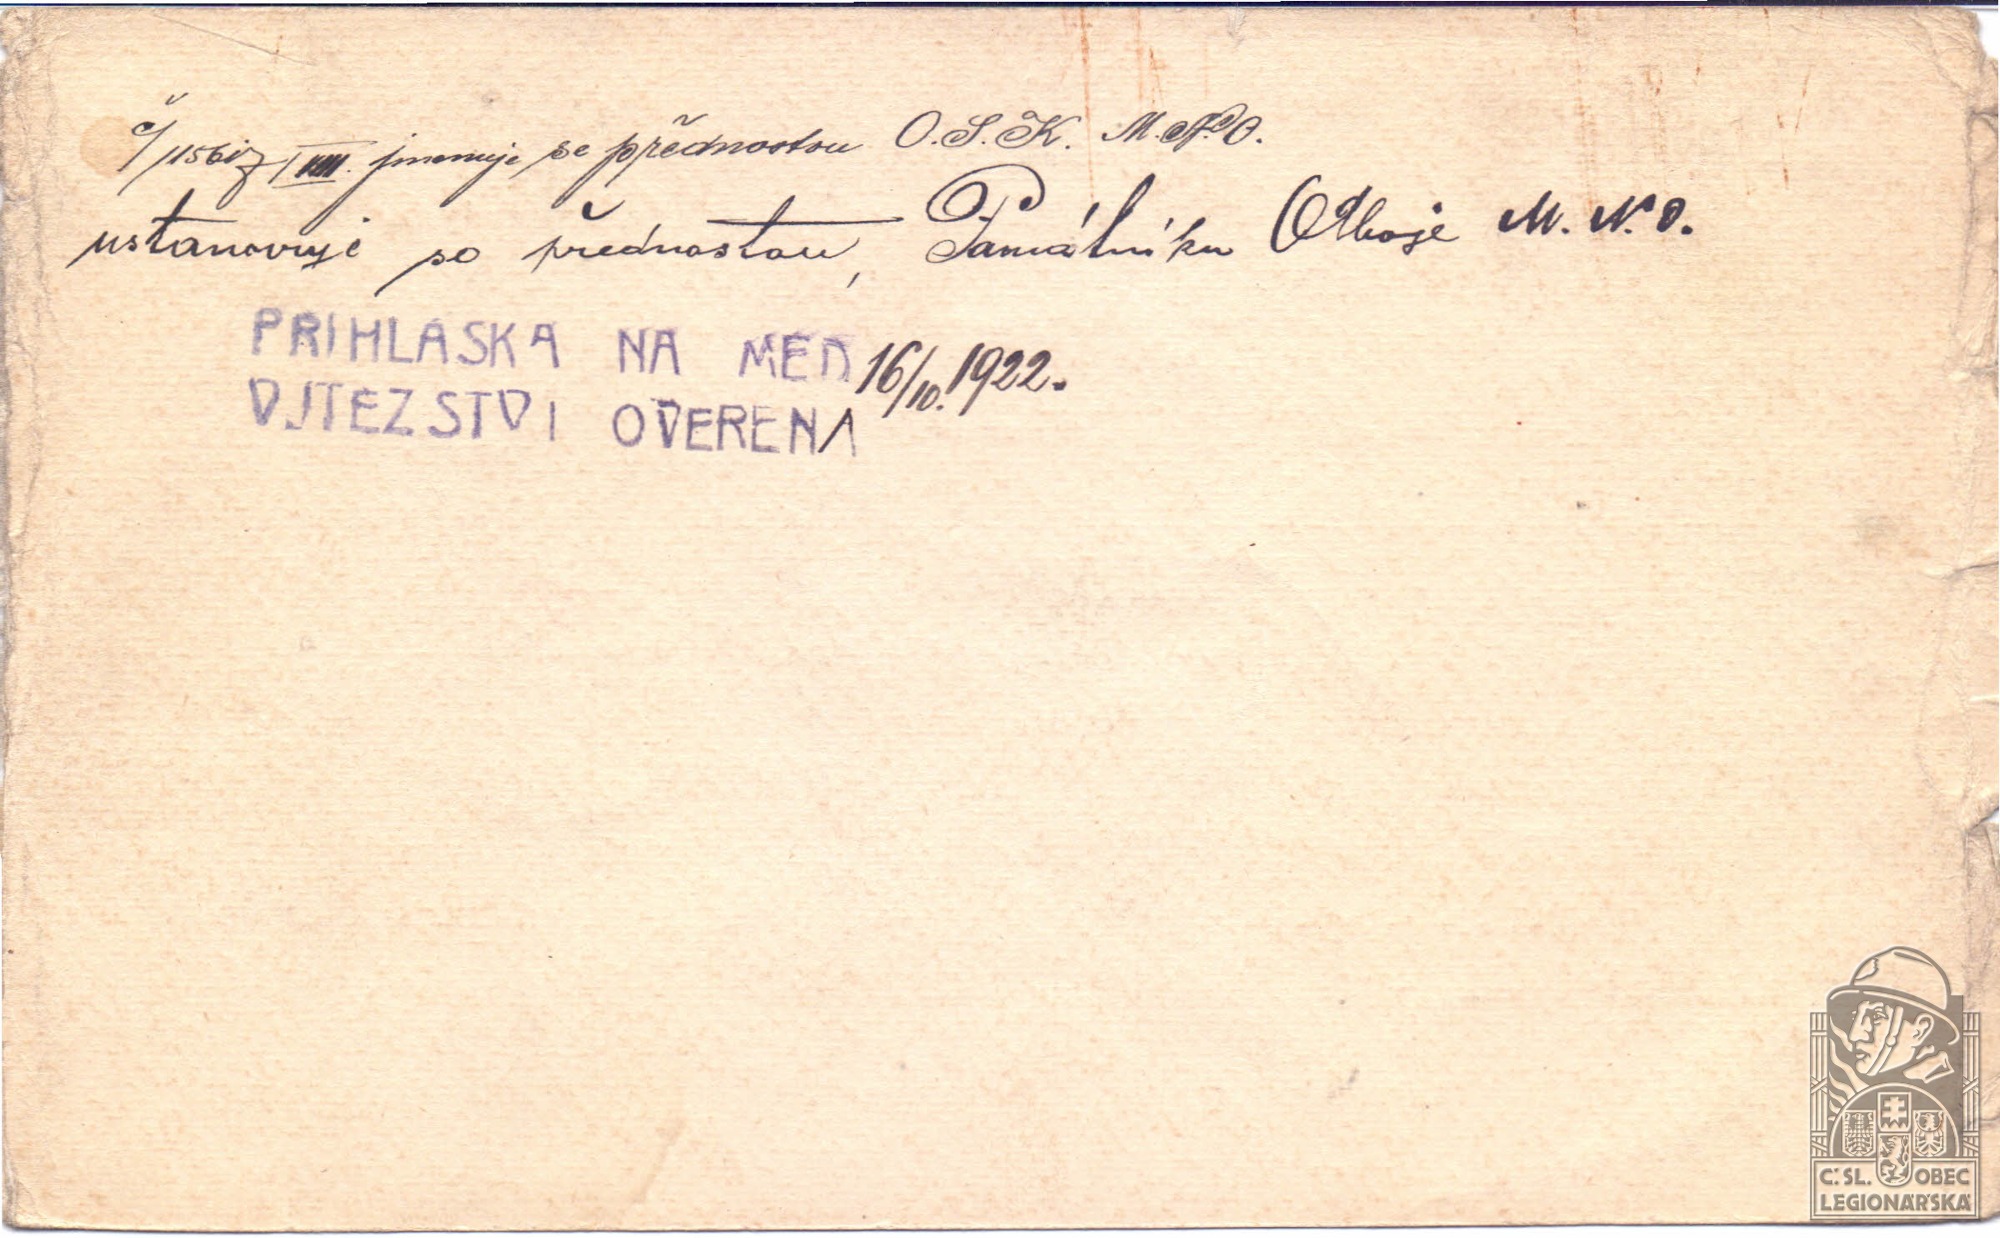 jmenuje se přednostou O.S.K. M.N.O.
ustanovuje se přednostou, Památníku Odboje M.N.O.
PRIHLASKA NA MED 16/10. 1922.
VITEZSTVI OVERENA
Č:SL. OBEC
LEGIONÁŘSKÁ